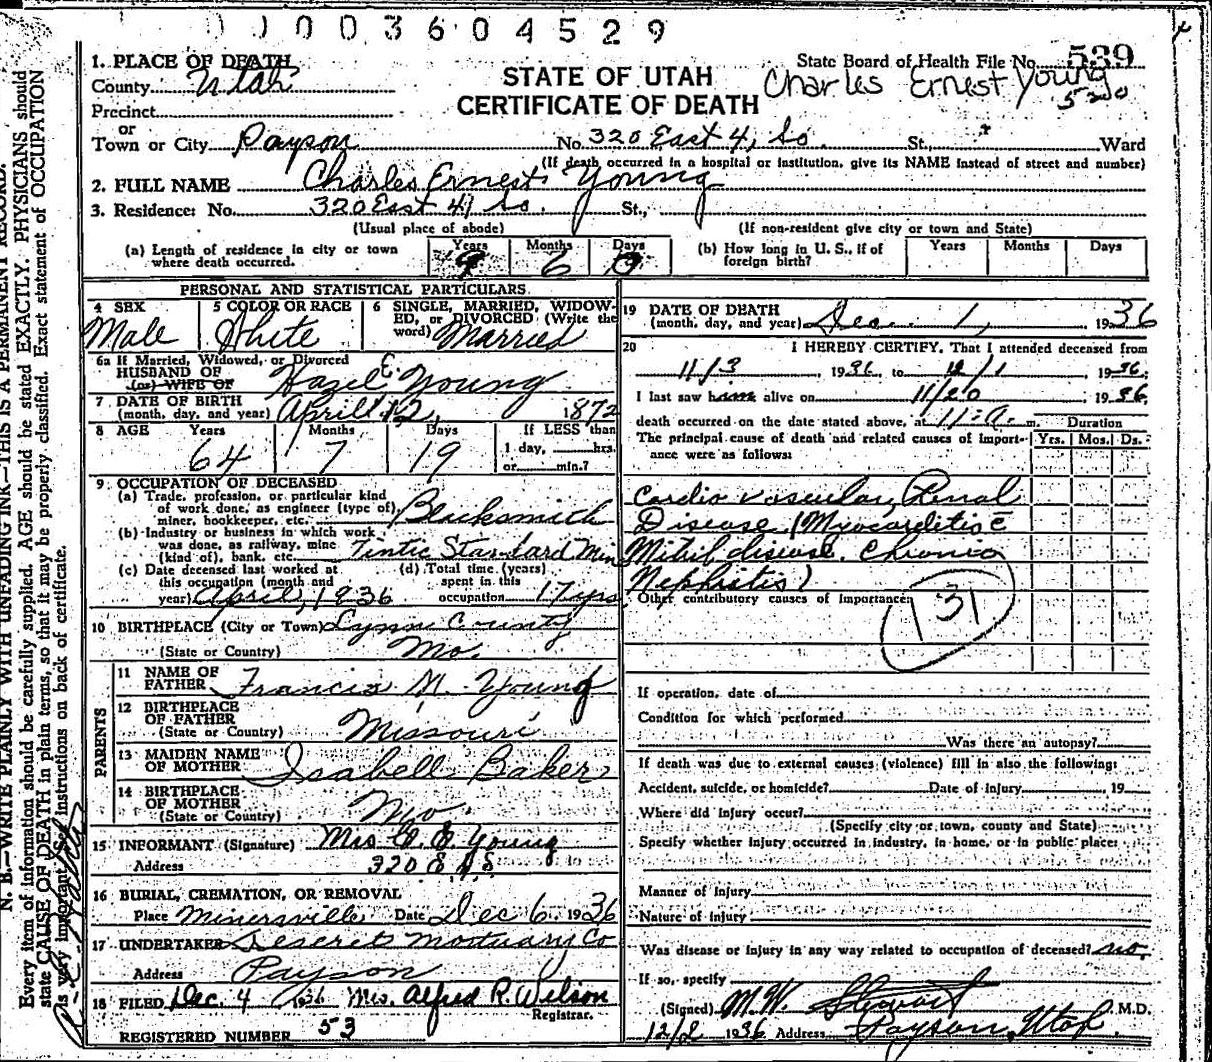 0 0 0 3 6 0 4 5 2 9
1. PLACE OF DEATH
County Utah
Precinct
or
Town or City Payson No. 320 East 4, So. St., Ward
STATE OF UTAH
CERTIFICATE OF DEATH
State Board of Health File No. 539
Charles Ernest Young
520
(If death occurred in a hospital or institution, give its NAME instead of street and number)
2. FULL NAME Charles Ernest Young
3. Residence: No. 320 East 4, So. St.,
(Usual place of abode) (If non-resident give city or town and State)
(a) Length of residence in city or town where death occurred. Years 9 Months 6 Days
(b) How long in U. S., if of foreign birth? Years Months Days
PERSONAL AND STATISTICAL PARTICULARS
4 SEX Male
5 COLOR OR RACE White
6 SINGLE, MARRIED, WIDOWED, or DIVORCED (Write the word) Married
6a If Married, Widowed, or Divorced
HUSBAND OF
(or) WIFE OF Hazel E. Young
7 DATE OF BIRTH
(month, day, and year) April 12, 1872
8 AGE Years 64 Months 7 Days 19 If LESS than 1 day, hrs. or min.?
9 OCCUPATION OF DECEASED
(a) Trade, profession, or particular kind
of work done, as engineer (type of)
miner, bookkeeper, etc. Blacksmith
(b) Industry or business in which work
was done, as railway, mine
(kind of), bank, etc. Tintic Standard Min
(c) Date deceased last worked at
this occupation (month and
year) April, 1936
(d) Total time (years)
spent in this
occupation 17 yrs
10 BIRTHPLACE (City or Town) Lynn County
(State or Country) Mo.
PARENTS
11 NAME OF
FATHER Francis M. Young
12 BIRTHPLACE
OF FATHER
(State or Country) Missouri
13 MAIDEN NAME
OF MOTHER Isabell Baker
14 BIRTHPLACE
OF MOTHER
(State or Country) Mo.
15 INFORMANT (Signature) Mrs C. E. Young
Address 320 E 4 S
16 BURIAL, CREMATION, OR REMOVAL
Place Minersville Date Dec 6, 1936
17 UNDERTAKER Deseret Mortuary Co
Address Payson
18 FILED Dec. 4 1936 Mrs. Alfred R. Wilson
Registrar.
REGISTERED NUMBER 53
19 DATE OF DEATH
(month, day, and year) Dec. 1, 1936
20 I HEREBY CERTIFY, That I attended deceased from
11/3, 1936, to 12/1, 1936;
I last saw him alive on 11/20, 1936,
death occurred on the date stated above, at 11:a. m. Duration
The principal cause of death and related causes of importance were as follows: Yrs. Mos. Ds.
Cardio vascular, Renal
Disease (Myocarditis c̄
Mitral disease. Chronic
Nephritis)
Other contributory causes of importance:
131
If operation, date of
Condition for which performed
Was there an autopsy?
If death was due to external causes (violence) fill in also the following:
Accident, suicide, or homicide? Date of injury, 19
Where did injury occur?
(Specify city or town, county and State)
Specify whether injury occurred in industry, in home, or in public place:
Manner of injury
Nature of injury
Was disease or injury in any way related to occupation of deceased? no.
If so, specify
(Signed) M. W. Stewart M.D.
12/2 1936 Address Payson, Utah
N. B.—WRITE PLAINLY WITH UNFADING INK—THIS IS A PERMANENT RECORD.
Every item of information should be carefully supplied. AGE should be stated EXACTLY. PHYSICIANS should
state CAUSE OF DEATH in plain terms, so that it may be properly classified. Exact statement of OCCUPATION
is very important. See instructions on back of certificate.